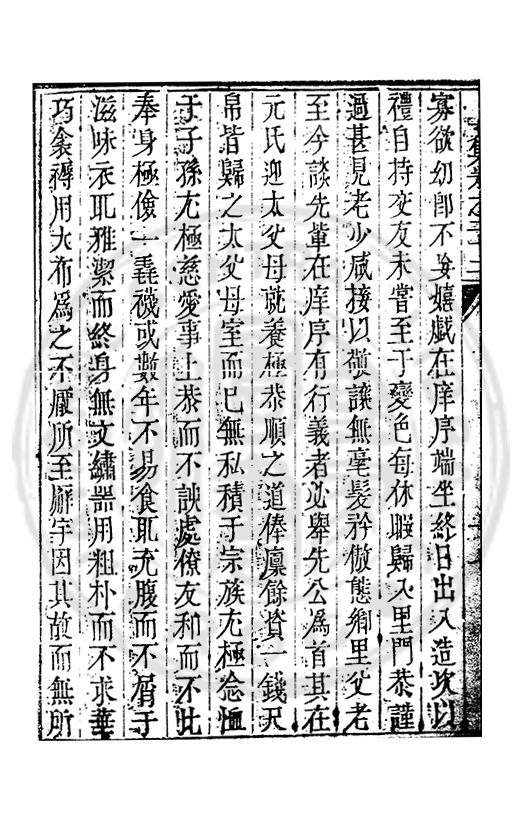 寡欲幼卽不妄嬉戲在庠序端坐終日出入造次以
禮自持交友未嘗至于變色每休暇歸入里門恭謹
過甚見老少咸接以敬讓無毫髮矜傲態鄉里父老
至今談先輩在庠序有行義者必舉先公爲首其在
元氏迎太父母就養極恭順之道俸廩餘貲一錢尺
帛皆歸之太父母室而已無私積于宗族尤極念恤
于子孫尤極慈愛事上恭而不諛處僚友和而不比
奉身極儉一毳襪或數年不易食取充腹而不屑于
滋味衣取雅潔而終身無文繡器用粗朴而不求華
巧衾褥用大布爲之不厭所至廨宇因其故而無所